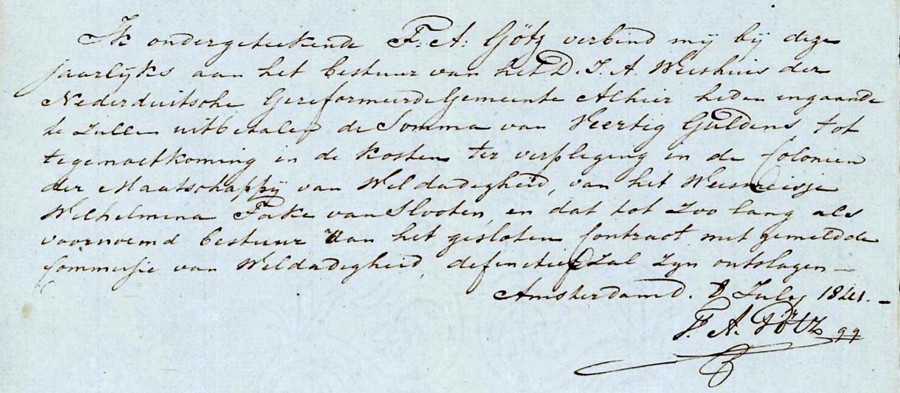 Ik ondergeteekende F: A: Götz verbind mij bij deze
jaarlijks aan het bestuur van het D. I. A. Weeshuis der
Nederduitsche Gereformeerde Gemeente Alhier heden ingaande
te Zullen uitbetalen de Somma van Veertig Guldens tot
tegemoetkoming in de kosten ter verpleging in de Colonien
der Maatschappij van Weldadigheid, van het Weesmeisje
Wilhelmina Fake van Slooten, en dat tot Zoo lang als
voornoemd bestuur van het gesloten Contract met gemeldde
Commissie van Weldadigheid, definitief Zal Zijn ontslagen —
Amsterdam d. 8 July 1841. –
F. A. Götz